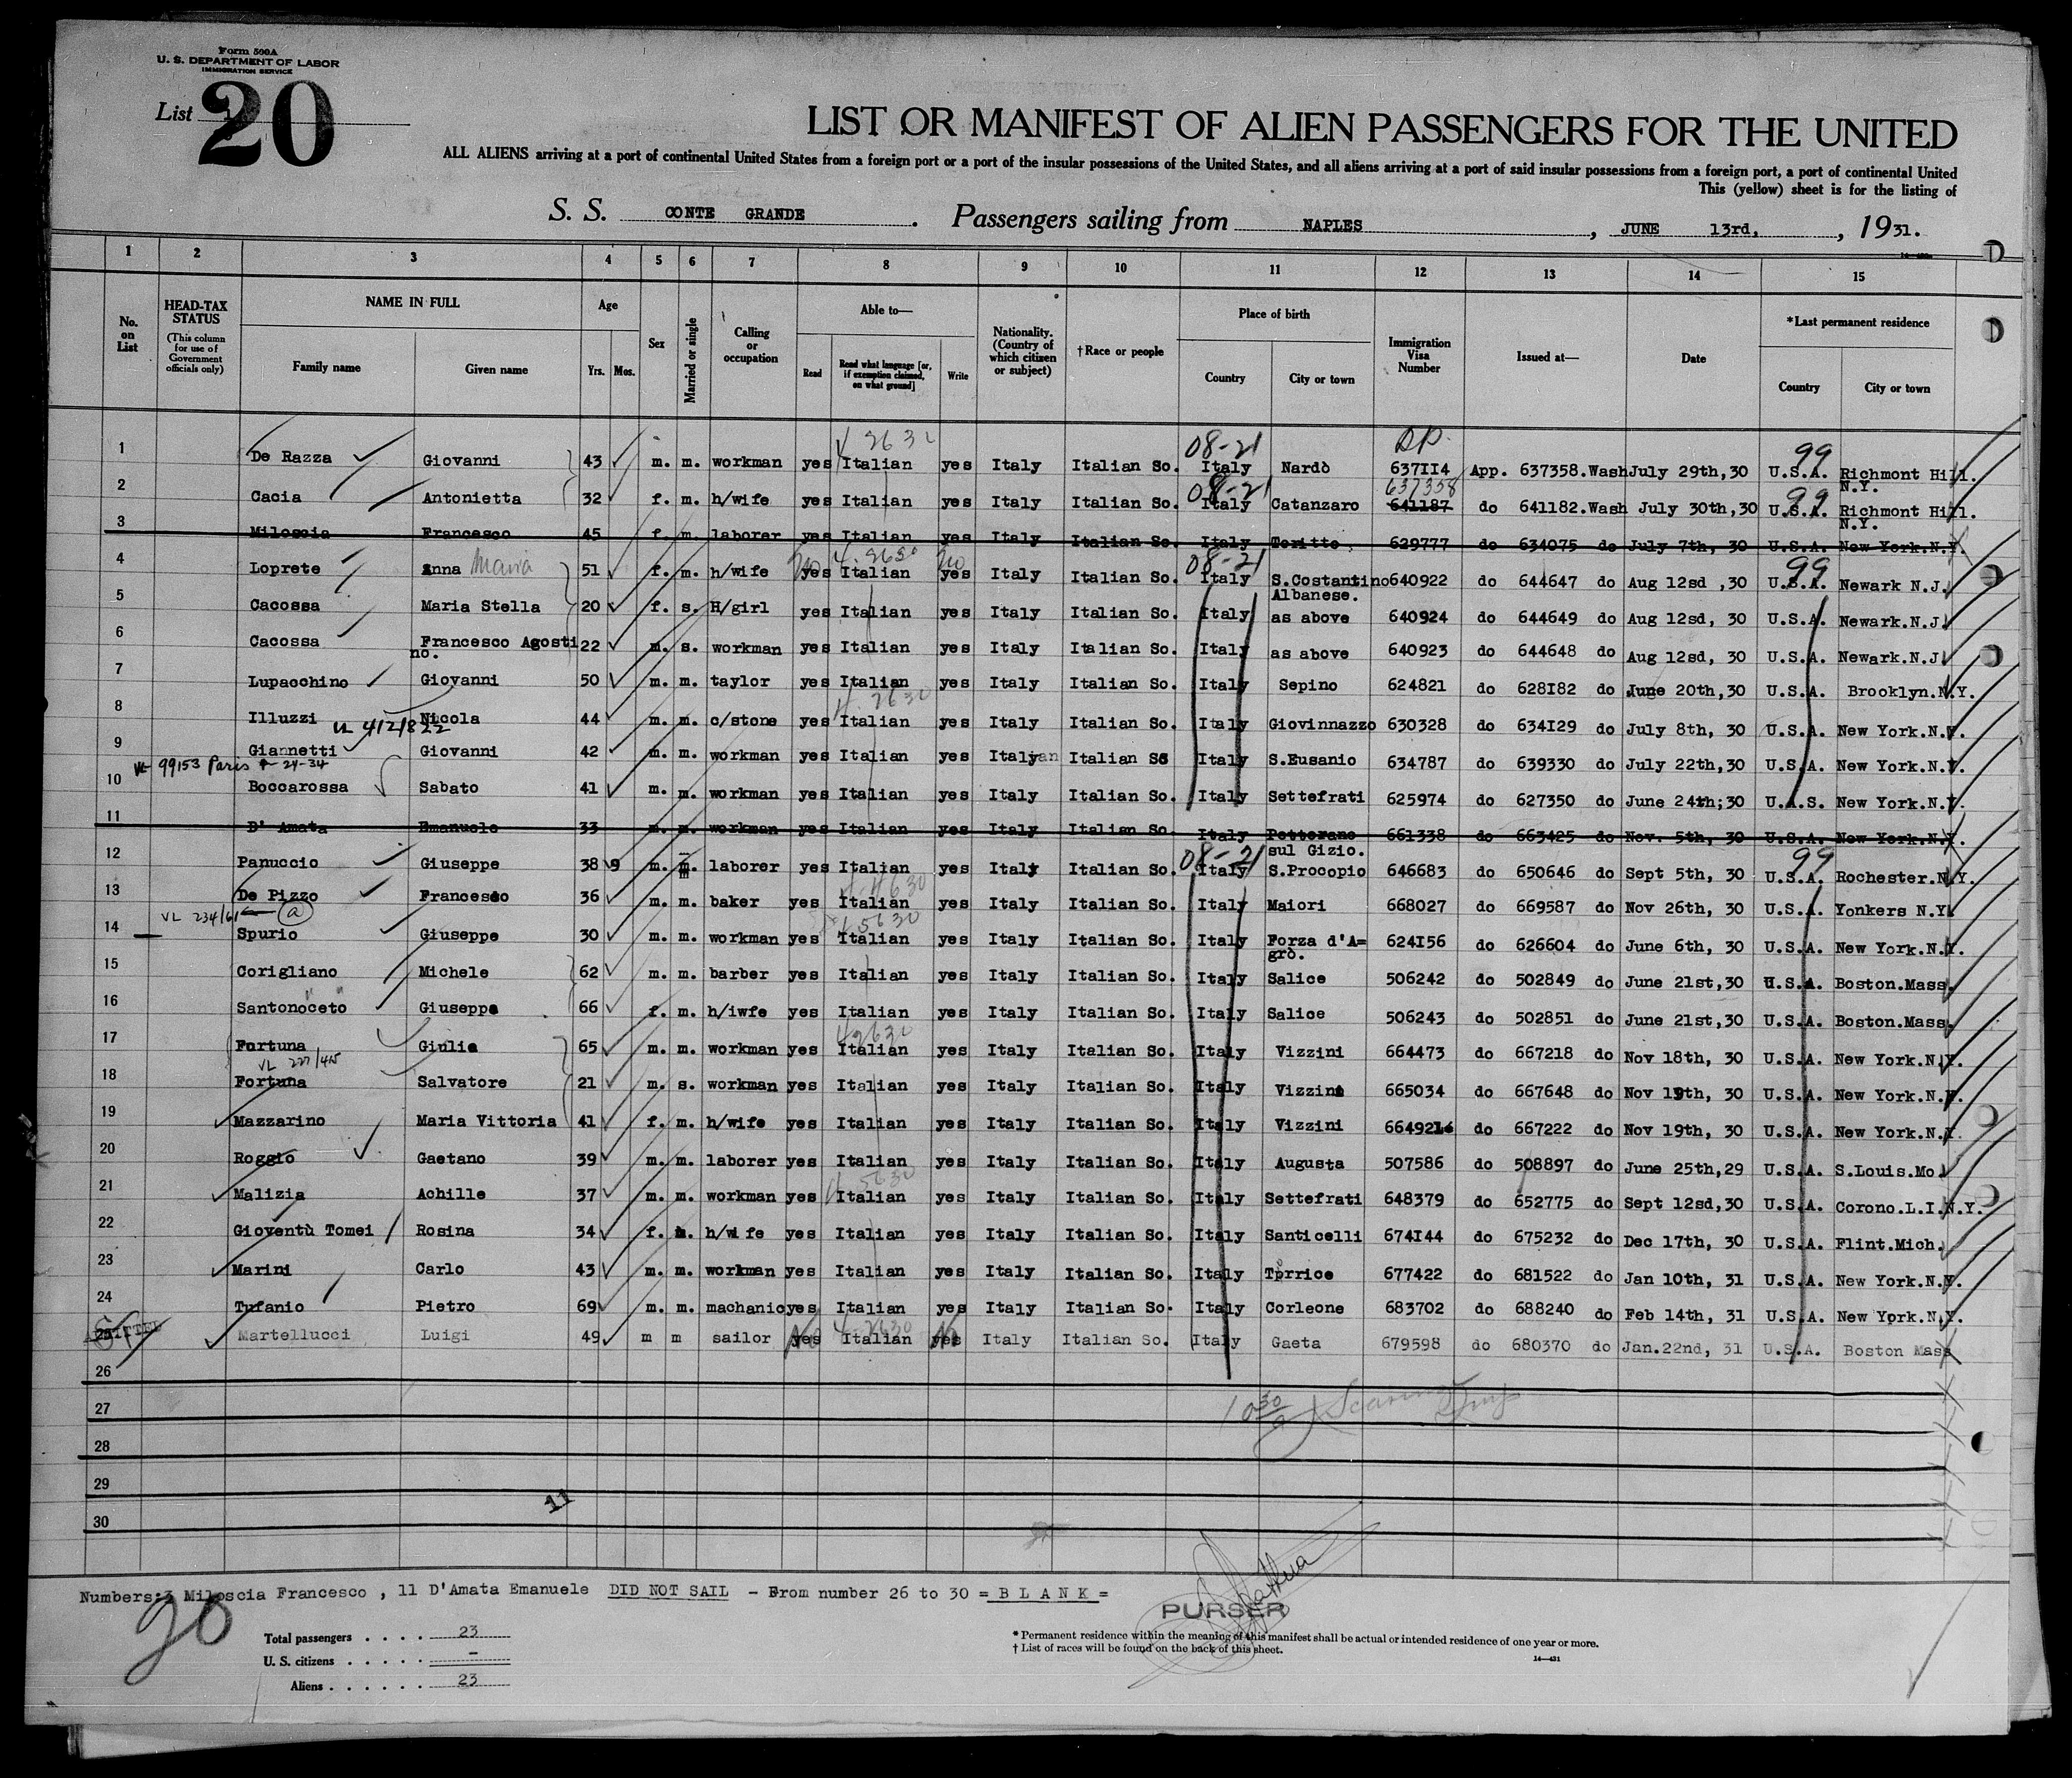 Form 500A
U. S. DEPARTMENT OF LABOR
IMMIGRATION SERVICE
List 20
LIST OR MANIFEST OF ALIEN PASSENGERS FOR THE UNITED
ALL ALIENS arriving at a port of continental United States from a foreign port or a port of the insular possessions of the United States, and all aliens arriving at a port of said insular possessions from a foreign port, a port of continental United
This (yellow) sheet is for the listing of
S. S. CONTE GRANDE. Passengers sailing from NAPLES, JUNE 13rd, , 1931.
1 2 3 4 5 6 7 8 9 10 11 12 13 14 15
No. on List
HEAD-TAX STATUS (This column for use of Government officials only)
NAME IN FULL Family name Given name
Age Yrs. Mos.
Sex
Married or single
Calling or occupation
Able to— Read Read what language [or, if exemption claimed, on what ground] Write
Nationality. (Country of which citizen or subject)
†Race or people
Place of birth Country City or town
Immigration Visa Number
Issued at—
Date
*Last permanent residence Country City or town
4 2632 08-21 DP. 99
1 De Razza Giovanni 43 m. m. workman yes Italian yes Italy Italian So. Italy Nardò 637114 App. 637358.Wash July 29th,30 U.S.A. Richmont Hill. N.Y.
08-21 637358 99
2 Cacia Antonietta 32 f. m. h/wife yes Italian yes Italy Italian So. Italy Catanzaro 641187 do 641182.Wash July 30th,30 U.S.A. Richmont Hill. N.Y.
3 Miloscia Francesco 45 f. m. laborer yes Italian yes Italy Italian So. Italy Toritto 629777 do 634075 do July 7th, 30 U.S.A. New York.N.Y.
No No 08-21 99
4 Loprete Anna Maria 51 f. m. h/wife yes Italian yes Italy Italian So. Italy S.Costantino Albanese. 640922 do 644647 do Aug 12sd ,30 U.S.A. Newark N.J.
5 Cacossa Maria Stella 20 f. s. H/girl yes Italian yes Italy Italian So. Italy as above 640924 do 644649 do Aug 12sd, 30 U.S.A. Newark.N.J.
6 Cacossa Francesco Agosti no. 22 m. s. workman yes Italian yes Italy Italian So. Italy as above 640923 do 644648 do Aug 12sd, 30 U.S.A. Newark.N.J
7 Lupacchino Giovanni 50 m. m. taylor yes Italian yes Italy Italian So. Italy Sepino 624821 do 628182 do June 20th,30 U.S.A. Brooklyn.N.Y.
8 Illuzzi Nicola 44 m. m. c/stone yes Italian yes Italy Italian So. Italy Giovinnazzo 630328 do 634129 do July 8th, 30 U.S.A. New York.N.Y.
9 Giannetti Giovanni 42 m. m. workman yes Italian yes Italyan Italian So Italy S.Eusanio 634787 do 639330 do July 22th,30 U.S.A. New York.N.Y.
99153 Paris
10 Boccarossa Sabato 41 m. m. workman yes Italian yes Italy Italian So. Italy Settefrati 625974 do 627350 do June 24th;30 U.A.S. New York.N.Y.
11 D' Amata Emanuele 33 m. m. workman yes Italian yes Italy Italian So. Italy Pettorano sul Gizio. 661338 do 663425 do Nov. 5th, 30 U.S.A. New York.N.Y.
08-21 99
12 Panuccio Giuseppe 38 9 m. m. laborer yes Italian yes Italy Italian So. Italy S.Procopio 646683 do 650646 do Sept 5th, 30 U.S.A. Rochester.N.Y.
13 De Pizzo Francesco 36 m. m. baker yes Italian yes Italy Italian So. Italy Maiori 668027 do 669587 do Nov 26th, 30 U.S.A. Yonkers N.Y.
VL 234/61 a
14 Spurio Giuseppe 30 m. m. workman yes Italian yes Italy Italian So. Italy Forza d'A= grò. 624156 do 626604 do June 6th, 30 U.S.A. New York.N.Y.
15 Corigliano Michele 62 m. m. barber yes Italian yes Italy Italian So. Italy Salice 506242 do 502849 do June 21st,30 U.S.A. Boston.Mass.
16 Santonoceto Giuseppe 66 f. m. h/iwfe yes Italian yes Italy Italian So. Italy Salice 506243 do 502851 do June 21st,30 U.S.A. Boston.Mass.
17 Fortuna Giulia 65 m. m. workman yes Italian yes Italy Italian So. Italy Vizzini 664473 do 667218 do Nov 18th, 30 U.S.A. New York.N.Y.
18 Fortuna Salvatore 21 m. s. workman yes Italian yes Italy Italian So. Italy Vizzini 665034 do 667648 do Nov 19th, 30 U.S.A. New York.N.Y.
19 Mazzarino Maria Vittoria 41 f. m. h/wife yes Italian yes Italy Italian So. Italy Vizzini 664921 do 667222 do Nov 19th, 30 U.S.A. New York.N.Y.
20 Roggio Gaetano 39 m. m. laborer yes Italian yes Italy Italian So. Italy Augusta 507586 do 508897 do June 25th,29 U.S.A. S.Louis.Mo.
21 Malizia Achille 37 m. m. workman yes Italian yes Italy Italian So. Italy Settefrati 648379 do 652775 do Sept 12sd,30 U.S.A. Corono.L.I.N.Y.
22 Gioventù Tomei Rosina 34 f. m. h/wife yes Italian yes Italy Italian So. Italy Santicelli 674144 do 675232 do Dec 17th, 30 U.S.A. Flint.Mich.
23 Marini Carlo 43 m. m. workman yes Italian yes Italy Italian So. Italy Torrice 677422 do 681522 do Jan 10th, 31 U.S.A. New York.N.Y.
24 Tufanio Pietro 69 m. m. machanic yes Italian yes Italy Italian So. Italy Corleone 683702 do 688240 do Feb 14th, 31 U.S.A. New York.N.Y.
25 Martellucci Luigi 49 m m sailor yes Italian yes Italy Italian So. Italy Gaeta 679598 do 680370 do Jan.22nd, 31 U.S.A. Boston Mass
26
27
28
29
11
30
Numbers:3 Miloscia Francesco , 11 D'Amata Emanuele DID NOT SAIL - From number 26 to 30 = B L A N K =
20
PURSER
Total passengers . . . . 23
U. S. citizens . . . . . -
Aliens . . . . . . 23
* Permanent residence within the meaning of this manifest shall be actual or intended residence of one year or more.
† List of races will be found on the back of this sheet.
14—431